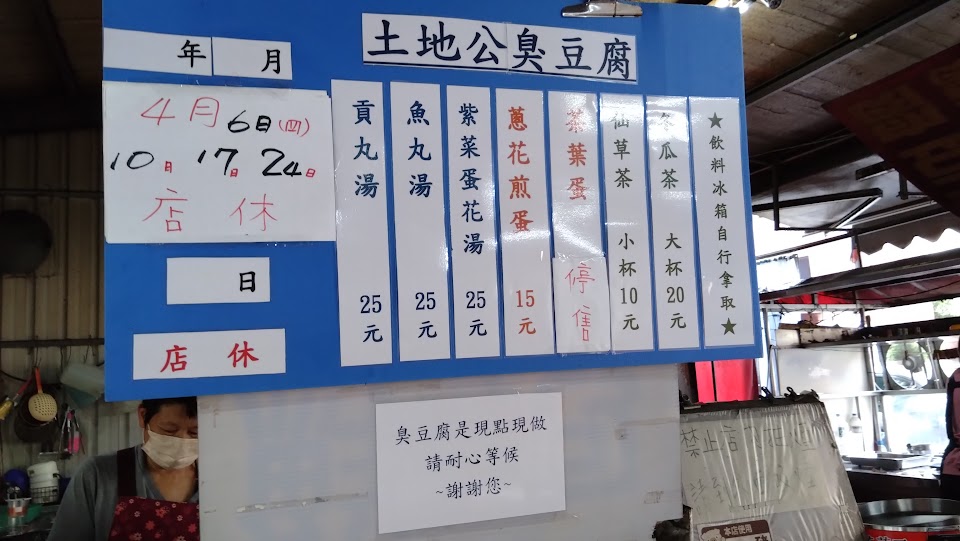 土地公臭豆腐
年 月
4月6日(四)
10日 17日 24日
店休
日
店休
貢丸湯 25元
魚丸湯 25元
紫菜蛋花湯 25元
蔥花煎蛋 15元
茶葉蛋 停售
仙草茶 小杯10元
冬瓜茶 大杯20元
★飲料冰箱自行拿取★
臭豆腐是現點現做
請耐心等候
~謝謝您~
禁止
本店使用